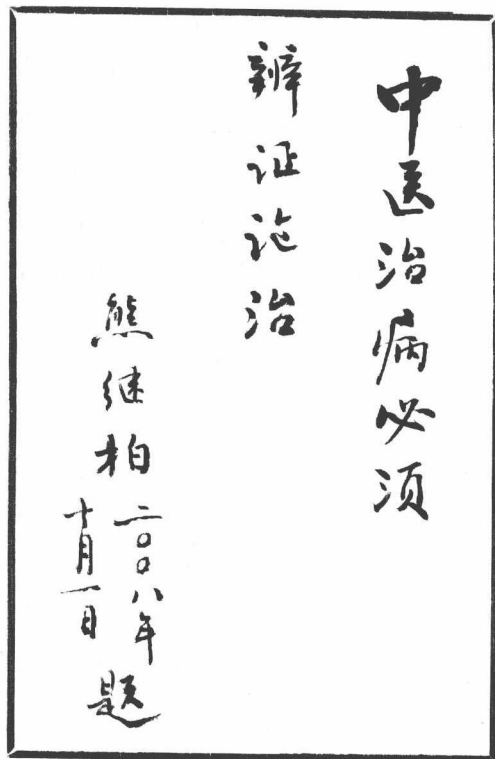 中医治病必须
辨证论治
熊继柏
二〇〇八年
十月一日
题